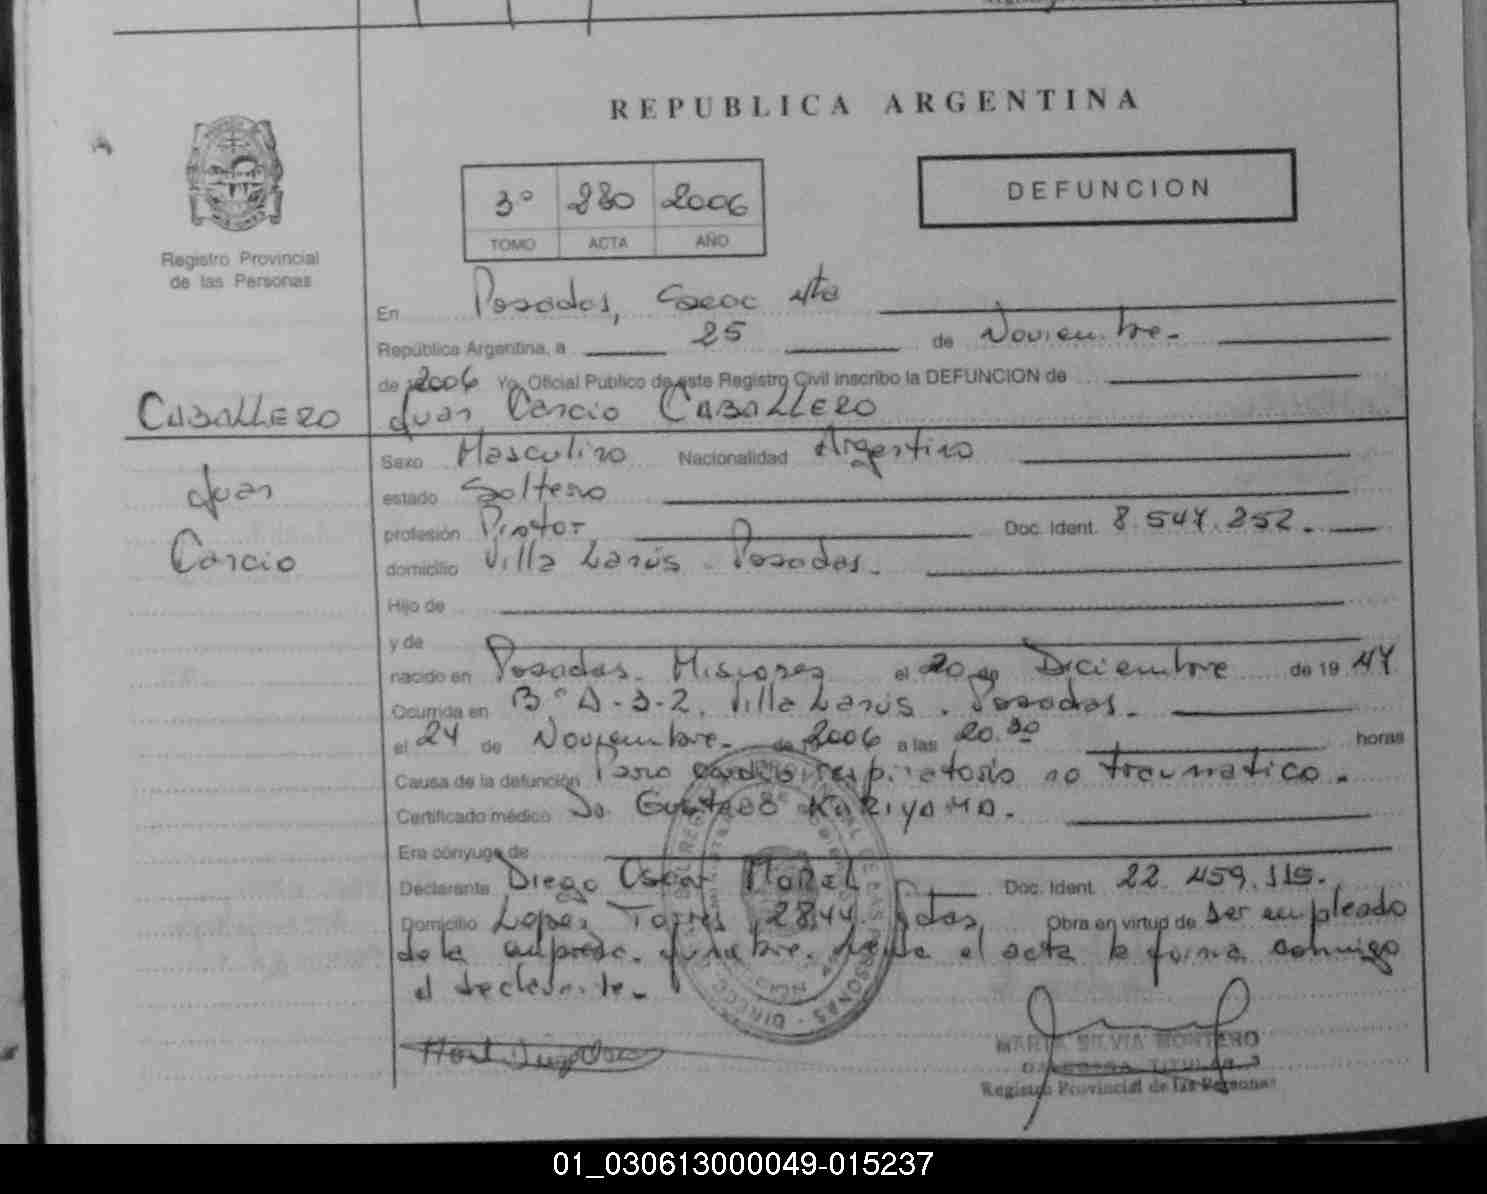 REPUBLICA ARGENTINA
3° 280 2006
TOMO ACTA AÑO
DEFUNCION
Registro Provincial
de las Personas
En Posadas,
República Argentina, a 25 de Noviembre.
de 2006 Yo, Oficial Publico de este Registro Civil inscribo la DEFUNCION de
CABALLERO
Juan
Juan CABALLERO
Sexo Masculino Nacionalidad Argentino
estado Soltero
profesión Pintor Doc. Ident. 8.547.252.
domicilio Villa Lanús. Posadas.
Hijo de
y de
nacido en Posadas. Misiones el 20 de Diciembre de 19 47
Ocurrida en B° A-3-2. Villa Lanús. Posadas.
el 24 de Noviembre. de 2006 a las 20.30 horas
Causa de la defunción Paro cardiorrespiratorio no traumatico.
Certificado médico Dr. Gustavo KURIYAMA.
Era cónyuge de
Declarante Diego Oscar MOREL Doc. Ident. 22.459.115.
Domicilio Lopez Torres 2844. Pdas, Obra en virtud de ser empleado
de la empresa. funebre. el acta la firma conmigo
el declarante.
MARIA SILVIA MONTERO
TITULAR
Registro Provincial de las Personas
01_030613000049-015237